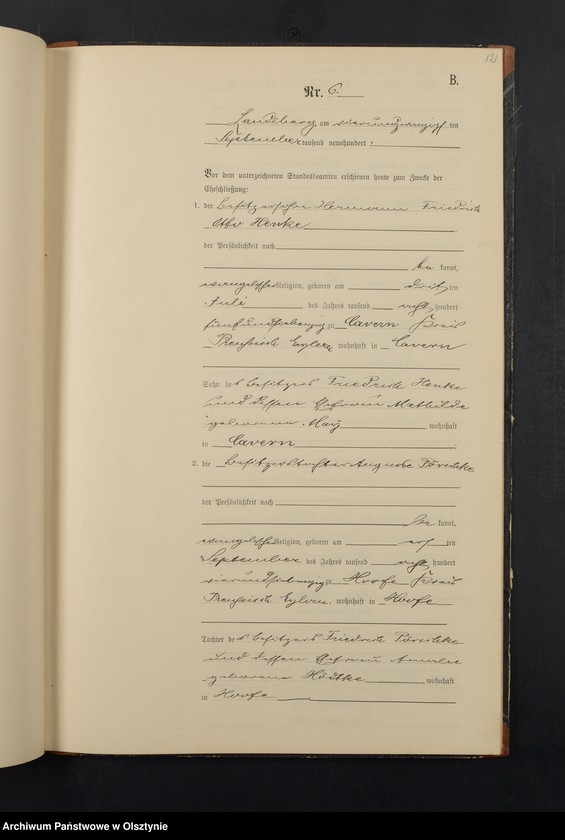 121
B.
Nr. 6.
Landsberg, am vierundzwanzigs ten
September tausend neunhundert
Vor dem unterzeichneten Standesbeamten erschienen heute zum Zwecke der
Eheschließung:
1. der Besitzersohn Hermann Friedrich
Otto Henke
der Persönlichkeit nach
be kannt,
evangelischer Religion, geboren am dritten
Juli des Jahres tausend acht hundert
fünfundsiebenzig zu Cavern Kreis
Preußisch Eylau wohnhaft in Cavern
Sohn des Besitzers Friedrich Henke
und dessen Ehefrau Mathilde
geborenen May wohnhaft
in Cavern
2. die Besitzerstochter Auguste
der Persönlichkeit nach
be kannt,
evangelischer Religion, geboren am ten
September des Jahres tausend acht hundert
vierundsiebenzig zu Hoofe Kreis
Preußisch Eylau, wohnhaft in Hoofe
Tochter des Besitzers Friedrich
und dessen Ehefrau Amalie
geborenen Hödtke wohnhaft
in Hoofe
Archiwum Państwowe w Olsztynie